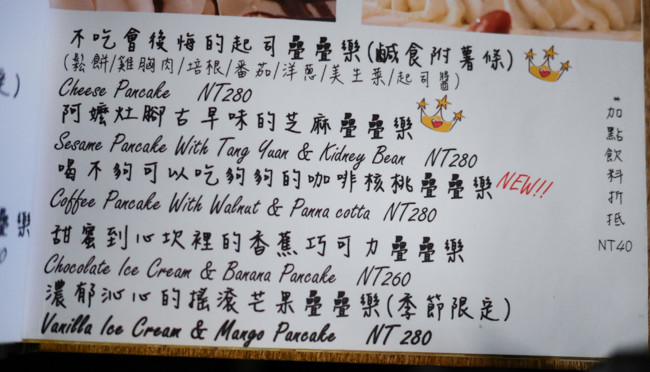 不吃會後悔的起司疊疊樂(鹹食附薯條)
(鬆餅/雞胸肉/培根/番茄/洋蔥/美生菜/起司醬)
Cheese Pancake NT280
阿嬤灶腳古早味的芝麻疊疊樂
Sesame Pancake With Tang Yuan & Kidney Bean NT280
喝不夠可以吃夠夠的咖啡核桃疊疊樂 NEW!!
Coffee Pancake With Walnut & Panna cotta NT280
甜蜜到心坎裡的香蕉巧可力疊疊樂
Chocolate Ice Cream & Banana Pancake NT260
濃郁沁心的搖滾芒果疊疊樂(季節限定)
Vanilla Ice Cream & Mango Pancake NT 280
加點飲料折抵
NT40
樂